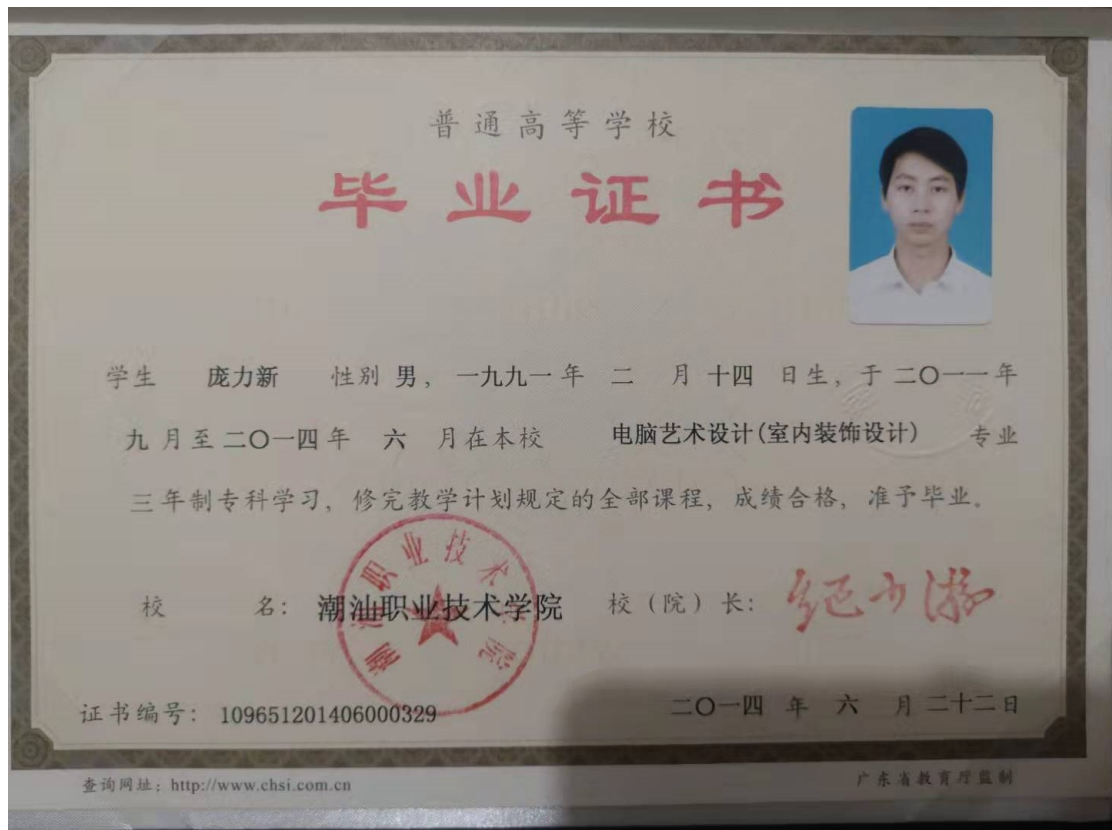 普通高等学校
毕业证书
学生 庞力新 性别 男，一九九一年 二 月 十四 日生，于 二〇一一年
九 月至 二〇一四年 六 月在本校 电脑艺术设计(室内装饰设计) 专业
三年制专科学习，修完教学计划规定的全部课程，成绩合格，准予毕业。
校 名：潮汕职业技术学院 校（院）长：纪少游
潮汕职业技术学院
证书编号：109651201406000329 二〇一四 年 六 月 二十二日
查询网址：http://www.chsi.com.cn 广东省教育厅监制